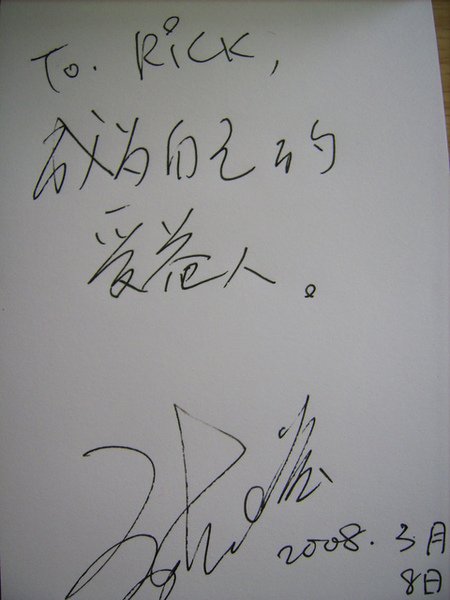 To. Rick,
成为自己的
爱益人。
2008.3月
8日